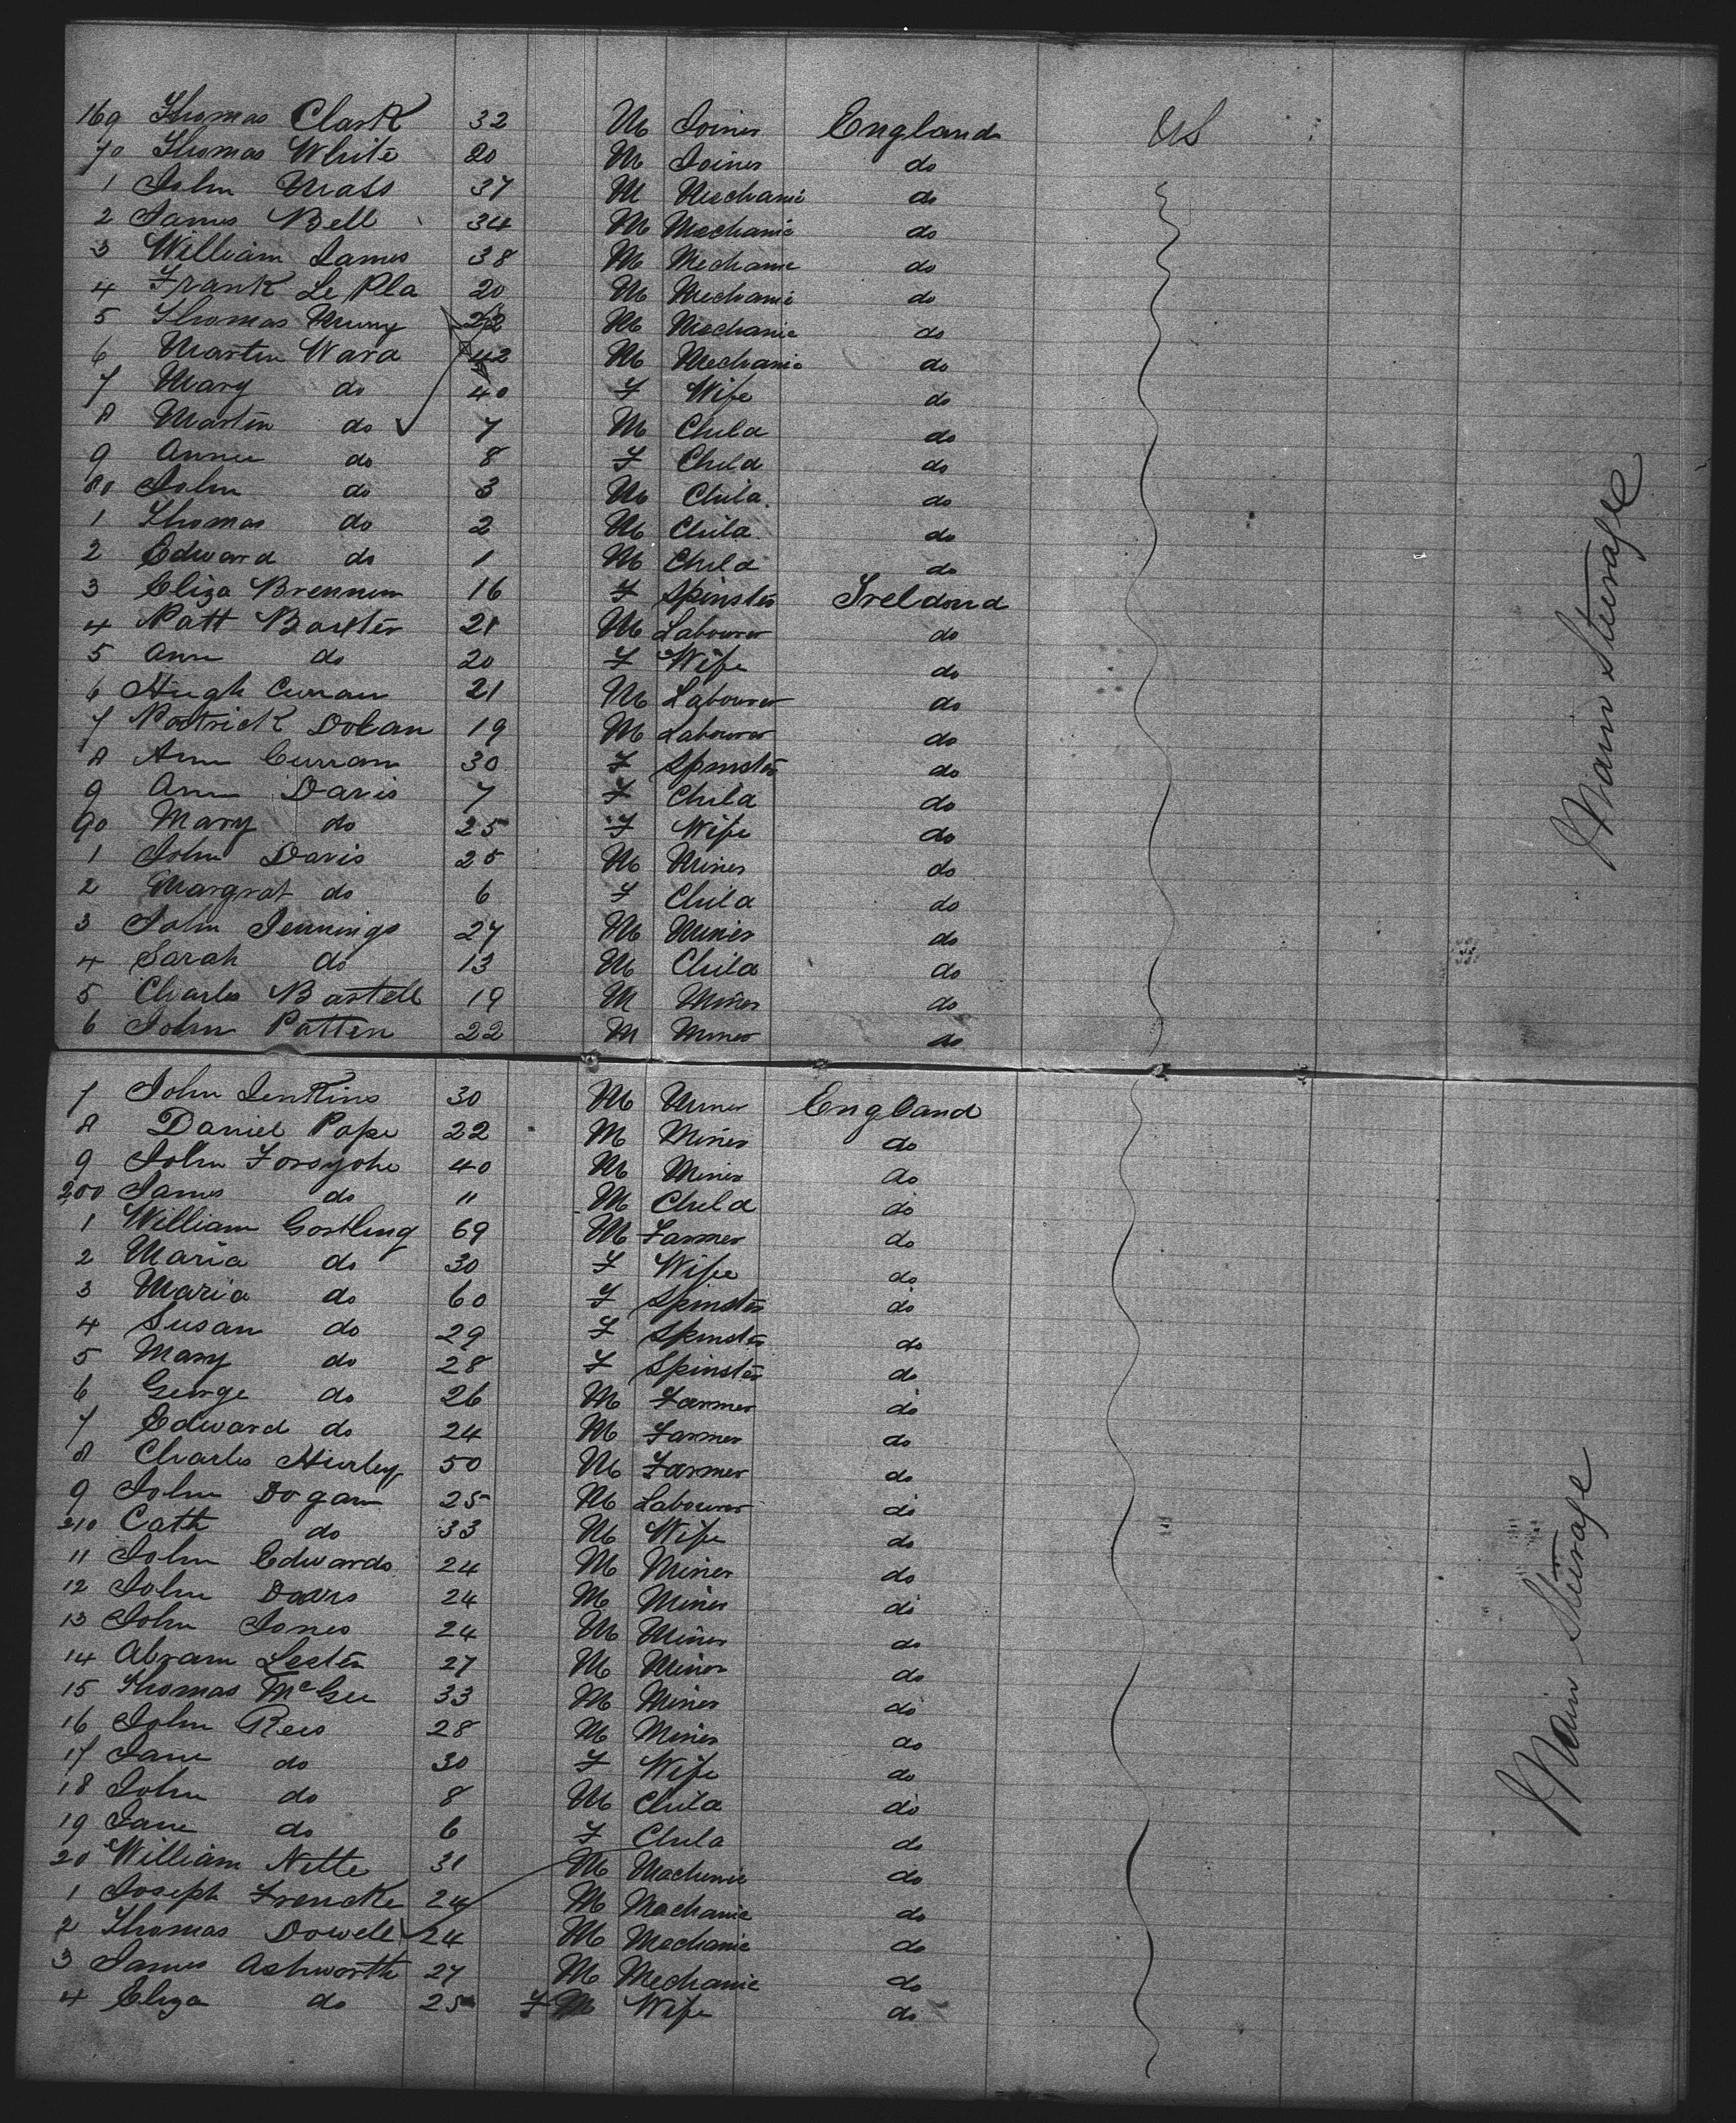 169 Thomas Clark 32 M Joiner England US
70 Thomas White 20 M Joiner do
1 John Mass 37 M Mechanic do
2 James Bell 34 M Mechanic do
3 William James 38 M Mechanic do
4 Frank Le Pla 20 M Mechanic do
5 Thomas 22 M Mechanic do
6 Martin Ward 42 M Mechanic do
7 Mary do 40 F Wife do
8 Martin do 7 M Child do
9 Annie do 8 F Child do
80 John do 3 M Child do
1 Thomas do 2 M Child do
2 Edward do 1 M Child do
3 Eliza Brennen 16 F Spinster Ireland
4 Patt Baxter 21 M Labourer do
5 Ann do 20 F Wife do
6 Hugh Curran 21 M Labourer do
7 Patrick Dolan 19 M Labourer do
8 Ann Curran 30 F Spinster do
9 Ann Davis 7 F Child do
90 Mary do 25 F Wife do
1 John Davis 25 M Miner do
2 Margrat do 6 F Child do
3 John Jennings 27 M Miner do
4 Sarah do 13 M Child do
5 Charles Bartell 19 M Miner do
6 John Patten 22 M Miner do
Main Steerage
7 John Jenkins 30 M Miner England
8 Daniel Pope 22 M Miner do
9 John Forsythe 40 M Miner do
200 James do 11 M Child do
1 William Gostling 69 M Farmer do
2 Maria do 30 F Wife do
3 Maria do 60 F Spinster do
4 Susan do 29 F Spinster do
5 Mary do 28 F Spinster do
6 George do 26 M Farmer do
7 Edward do 24 M Farmer do
8 Charles Hurley 50 M Farmer do
9 John Dogan 25 M Labourer do
210 Cath do 33 M Wife do
11 John Edwards 24 M Miner do
12 John Davis 24 M Miner do
13 John Jones 24 M Miner do
14 Abram Lester 27 M Miner do
15 Thomas McGee 33 M Miner do
16 John Rees 28 M Miner do
17 Jane do 30 F Wife do
18 John do 8 M Child do
19 Jane do 6 F Child do
20 William Nette 31 M Mechanic do
1 Joseph Frencke 24 M Mechanic do
2 Thomas Dowell 24 M Mechanic do
3 James Ashworth 27 M Mechanic do
4 Eliza do 25 F Wife do
Main Steerage